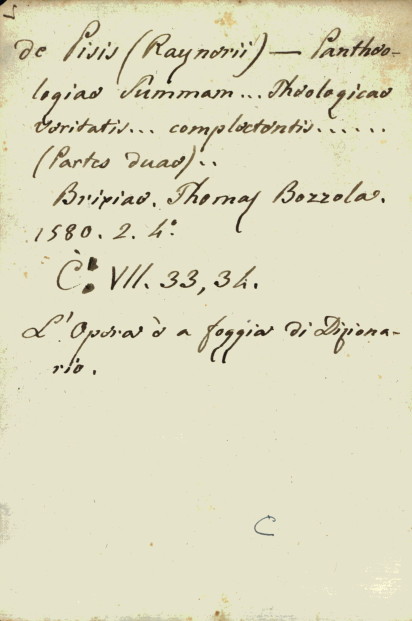 de Pisis (Raynerii) — Pantheo-
logiae Summam... Theologicae
veritatis... complectentis......
(Partes duae)..
Brixiae. Thomas Bozzola.
1580. 2. 4°.
C. VII. 33, 34.
L'Opera è a foggia di Diziona-
rio.
C